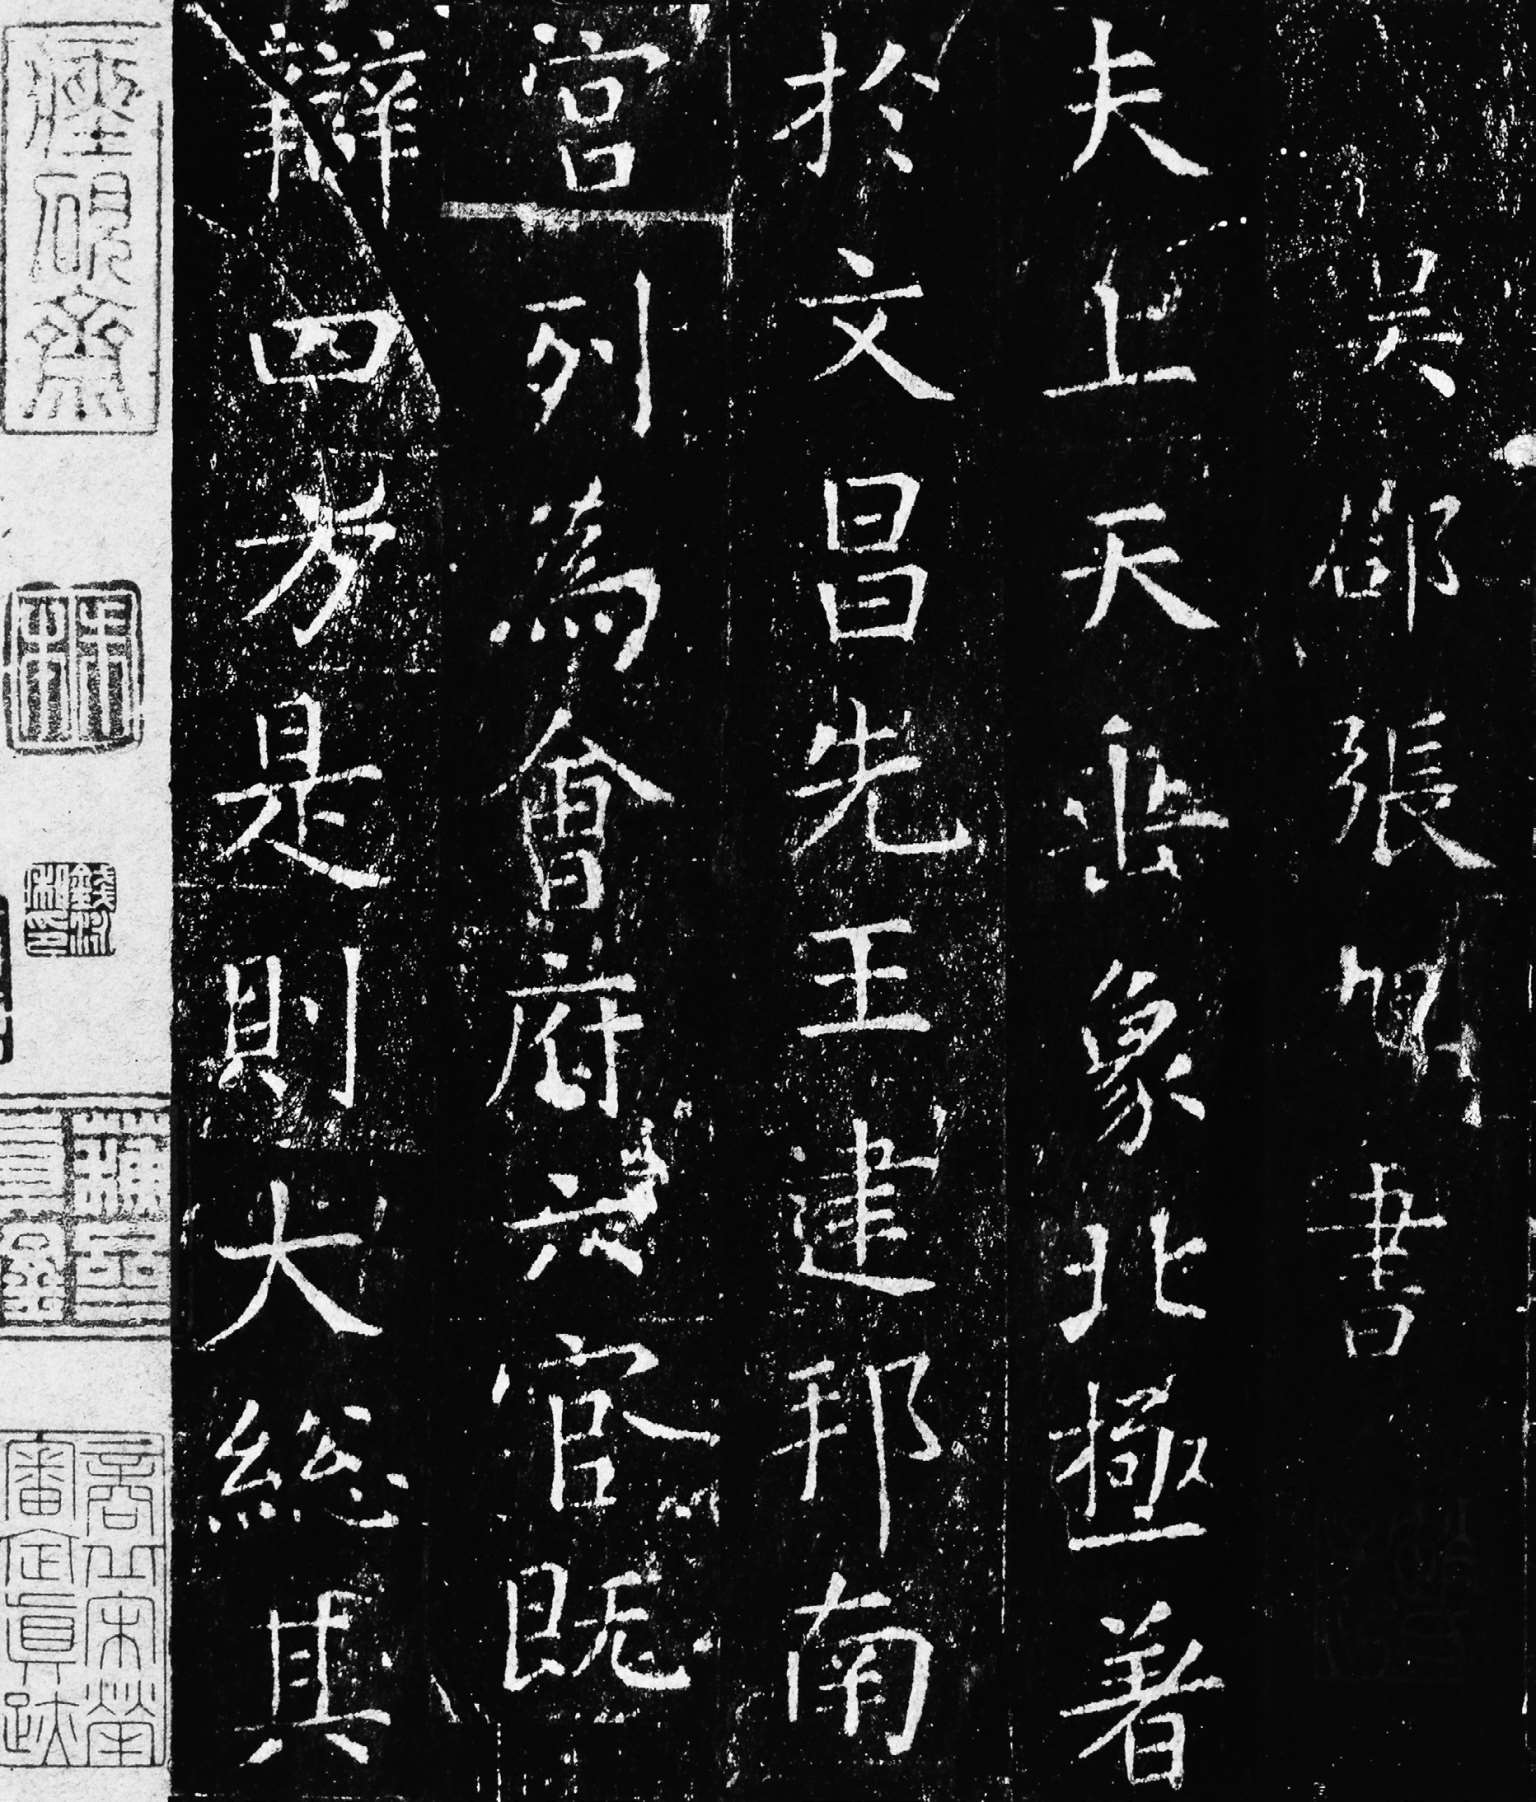 吴郡張旭書
夫上天垂象北極著
於文昌先王建邦南
宫列為會府六官既
辯四方是則大総其